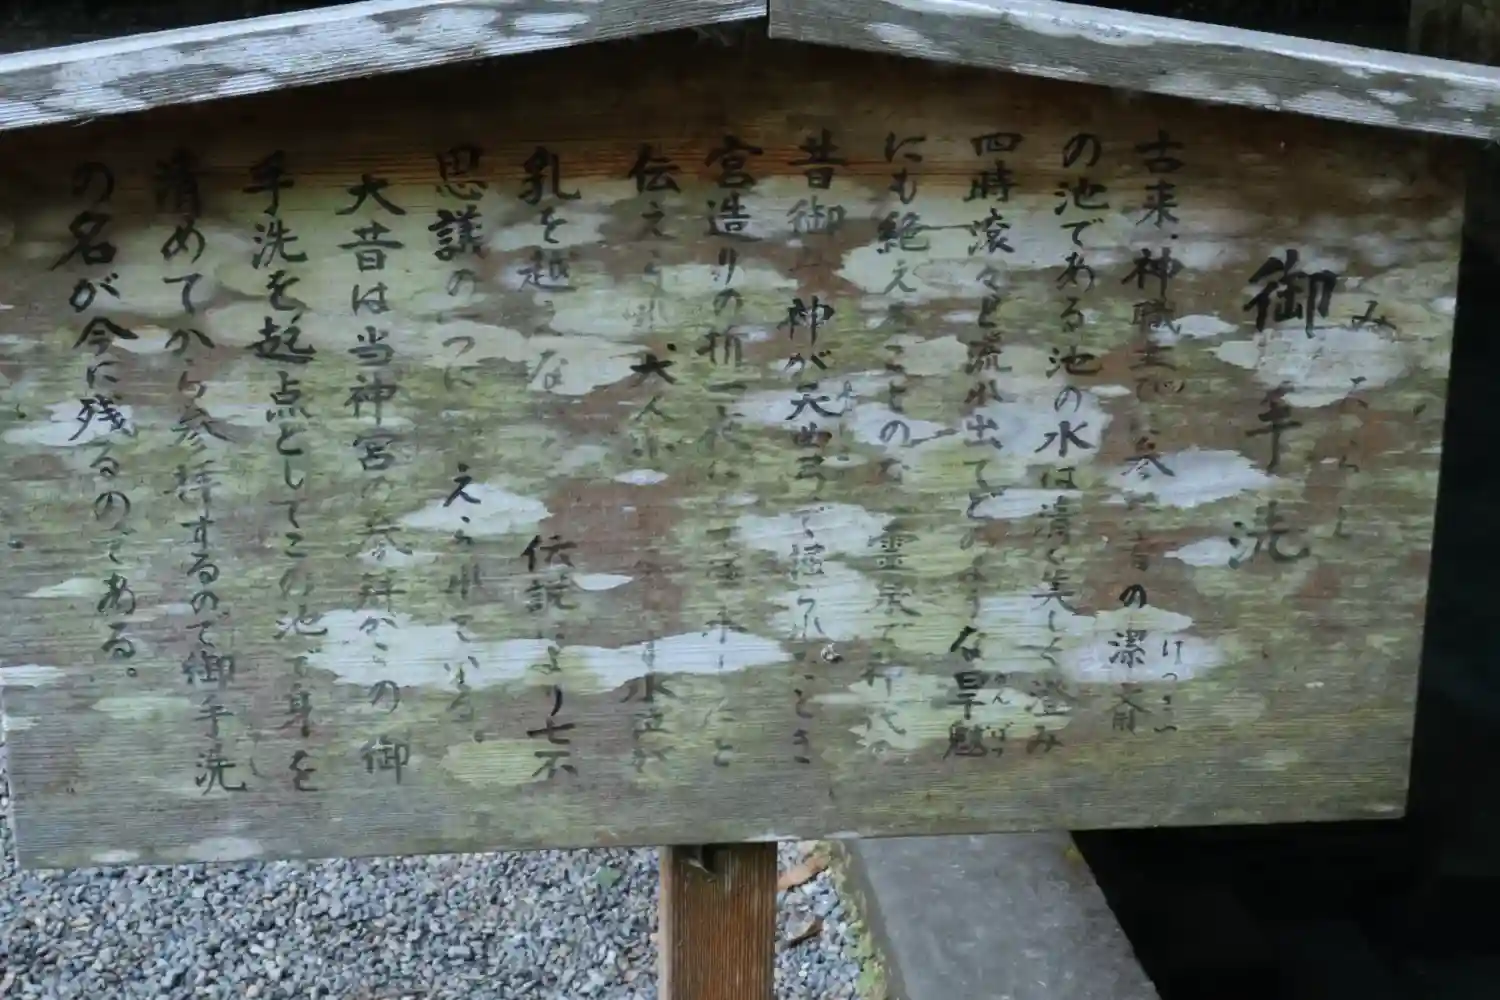 御手洗
みたらし
古来、神職並びに参
の潔斎
けっさい
の池である池の水は清く美しく澄み
四時滾々と流れ出てどのような旱魃
かんばつ
にも絶えたことのな 霊泉で神代の
昔御 神が天曲弓で掘られ とき
宮造りの折一夜に
と
伝えられ 大人小 は水位が
乳を越えな 伝説により七不
思議の一つに えられている。
大昔は当神宮の参拝がこの御
手洗を起点としてこの池で身を
清めてから参拝するので御手洗
の名が今に残るのである。